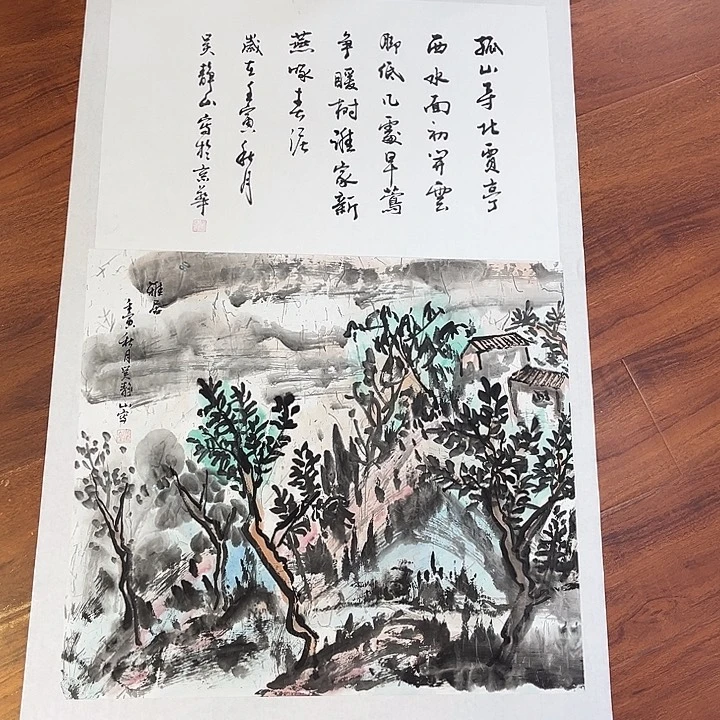 孤山寺北賈亭
西水面初平雲
脚低几處早鶯
争暖树谁家新
燕啄春泥
歲在壬寅秋月
吴静山寫於京華
雅
壬寅秋月吴静山寫